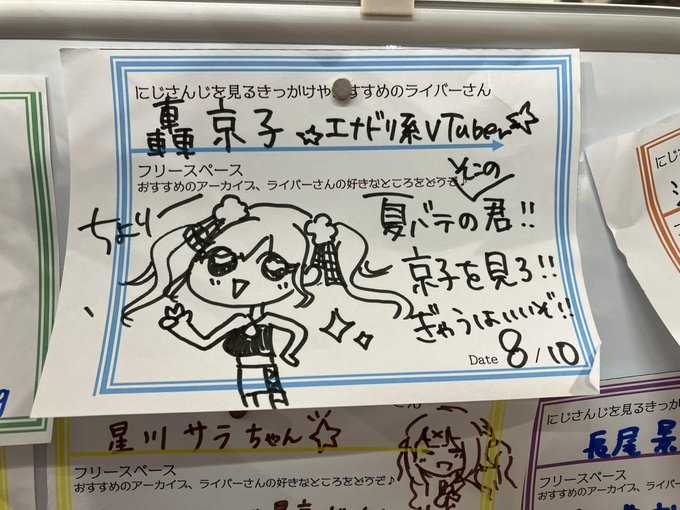 にじさんじを見るきっかけや すすめのライバーさん
轟 京子 ☆エナドリ系VTuber☆
フリースペース
おすすめのアーカイブ、ライバーさんの好きなところをどうぞ♪
ちょり
そこの
夏バテの君!!
京子を見ろ!!
ぎゃうはいいぞ!!
Date 8/10
星川サラちゃん☆
フリースペース
おすすめのアーカイブ、ライバーさんの好きなところをどうぞ♪
にじさんじを見るきっか
長尾景
フリースペース
おすすめのアーカイブ、ライバー
にじ
フ